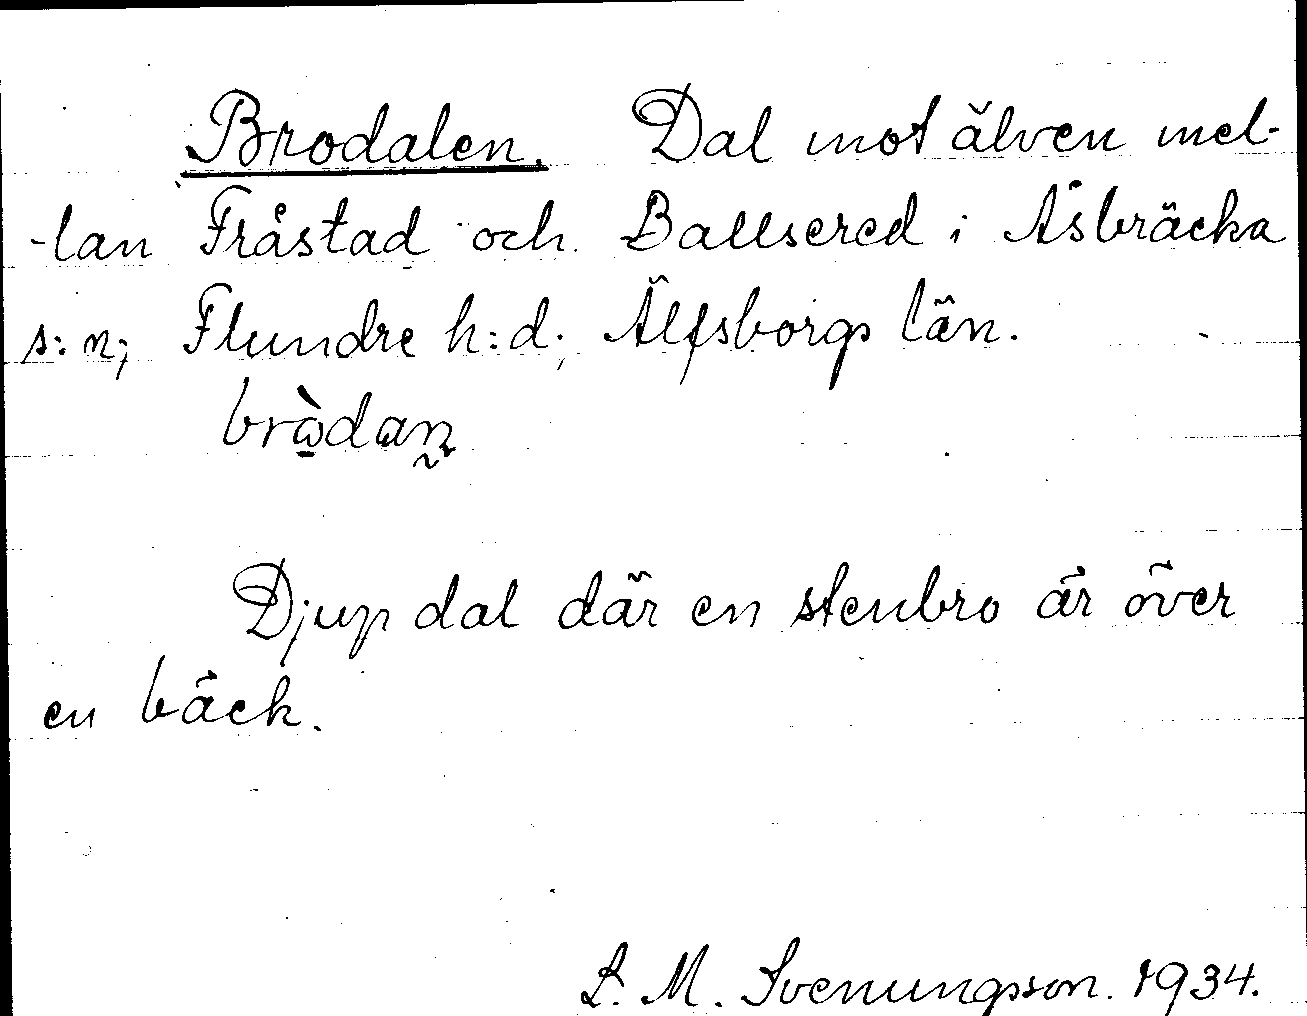 Brodalen. Dal mot älven mel-
-lan Fråstad och Ballsered i Åsbräcka
s:n; Flundre h:d; Älfsborgs län.
bròdan̰
Djup dal där en stenbro är över
en bäck.
L. M. Svenungsson. 1934.